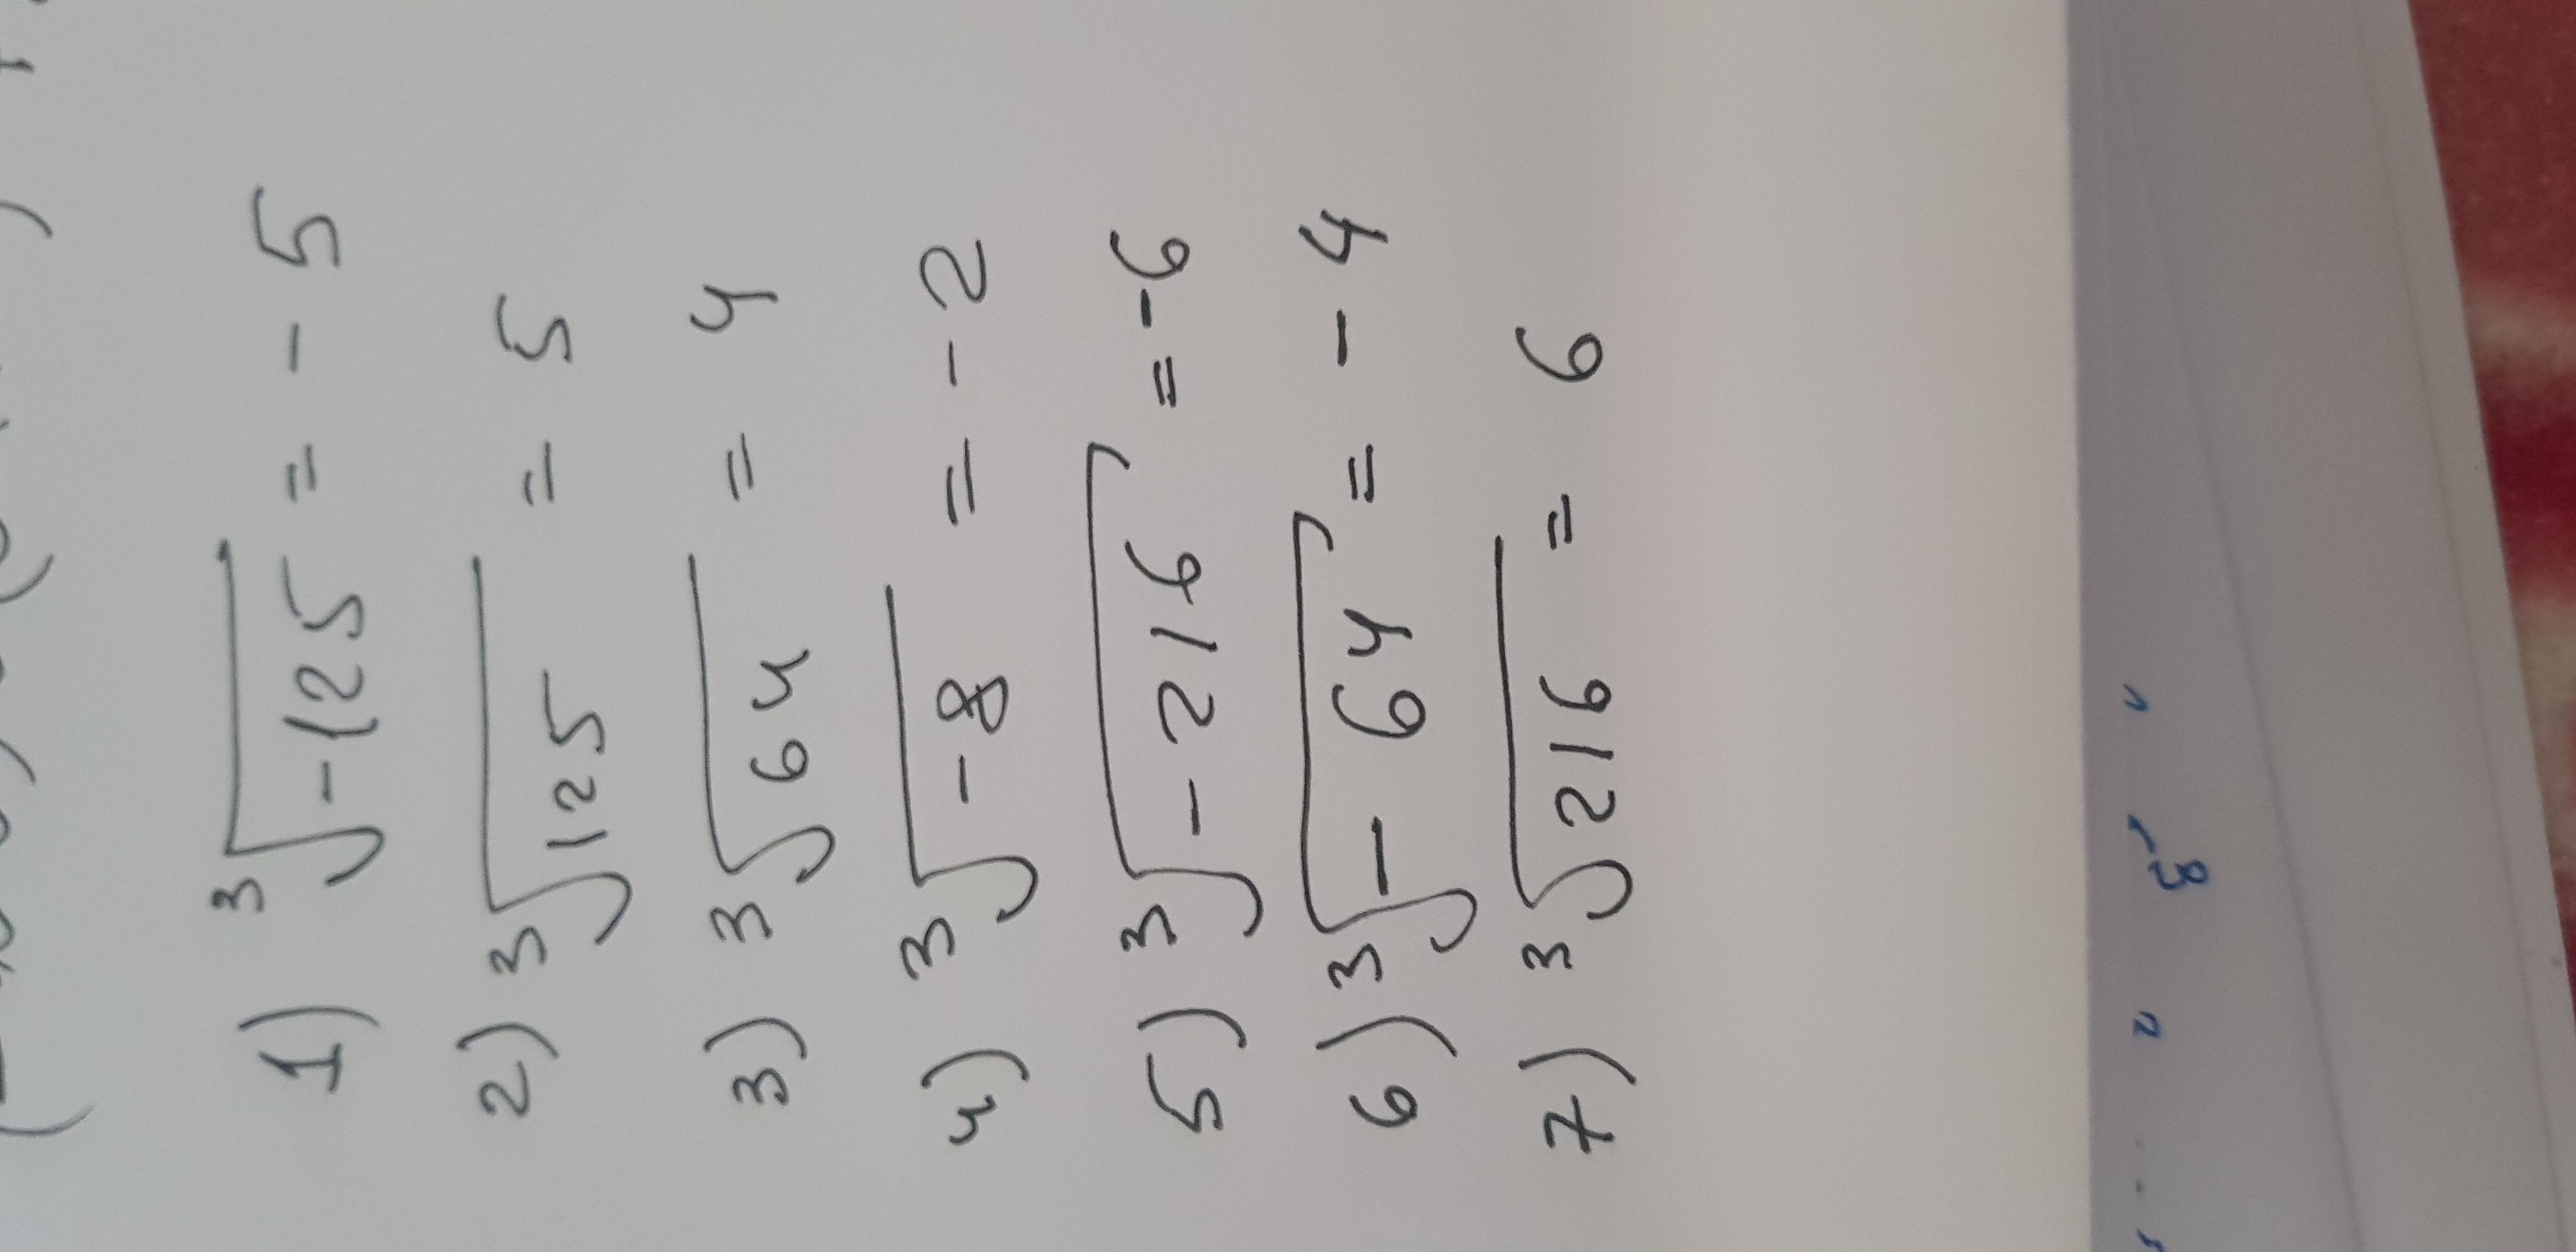 1) ∛-125 = - 5
2) ∛125 = 5
3) ∛64 = 4
4) ∛-8 = - 2
5) ∛-216 = -6
6) ∛-64 = - 4
7) ∛216 = 6